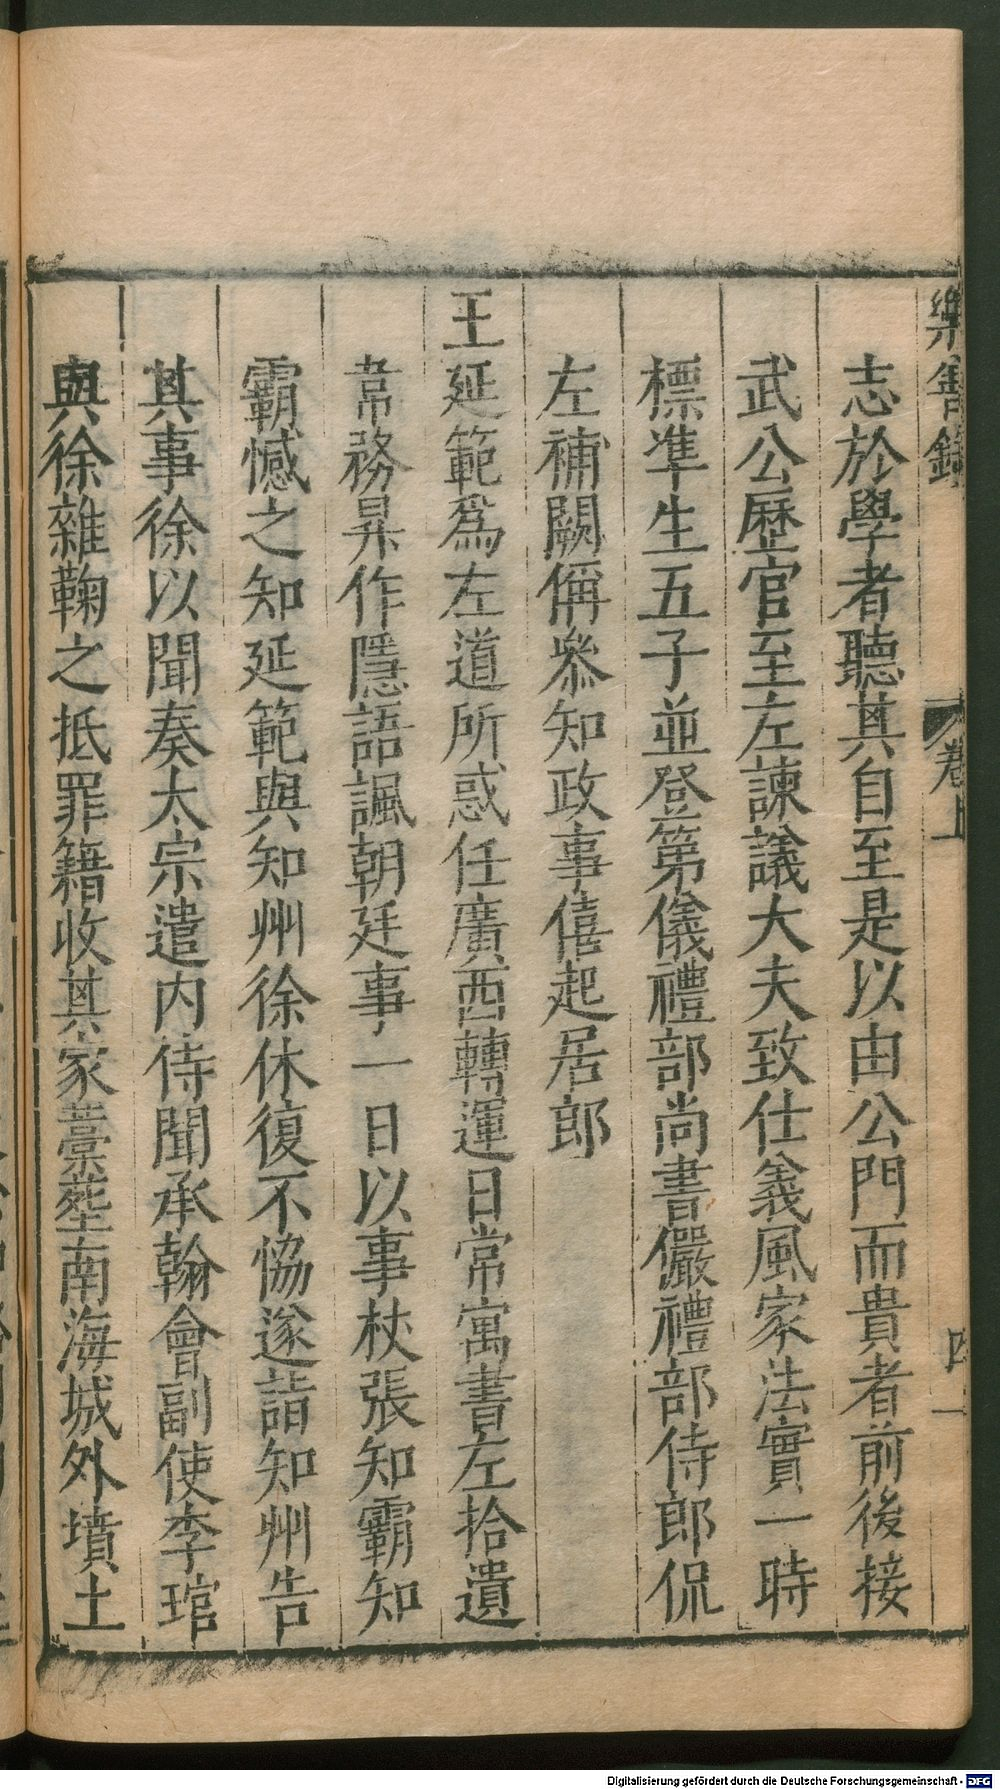 樂善錄 卷上 四一
志於學者聽其自至是以由公門而貴者前後接
武公歷官至左諫議大夫致仕義風家法實一時
標準生五子並登第儀禮部尚書儼禮部侍郎侃
左補闕偁叅知政事僖起居郎
王延範爲左道所惑任廣西轉運日常寓書左拾遺
韋務昇作隱語諷朝廷事一日以事杖張知霸知
霸憾之知延範與知州徐休復不恊遂詣知州告
其事徐以聞奏太宗遣内侍聞承翰會副使李琯
與徐雜鞠之抵罪籍收其家藁塟南海城外墳土
Digitalisierung gefördert durch die Deutsche Forschungsgemeinschaft - DFG